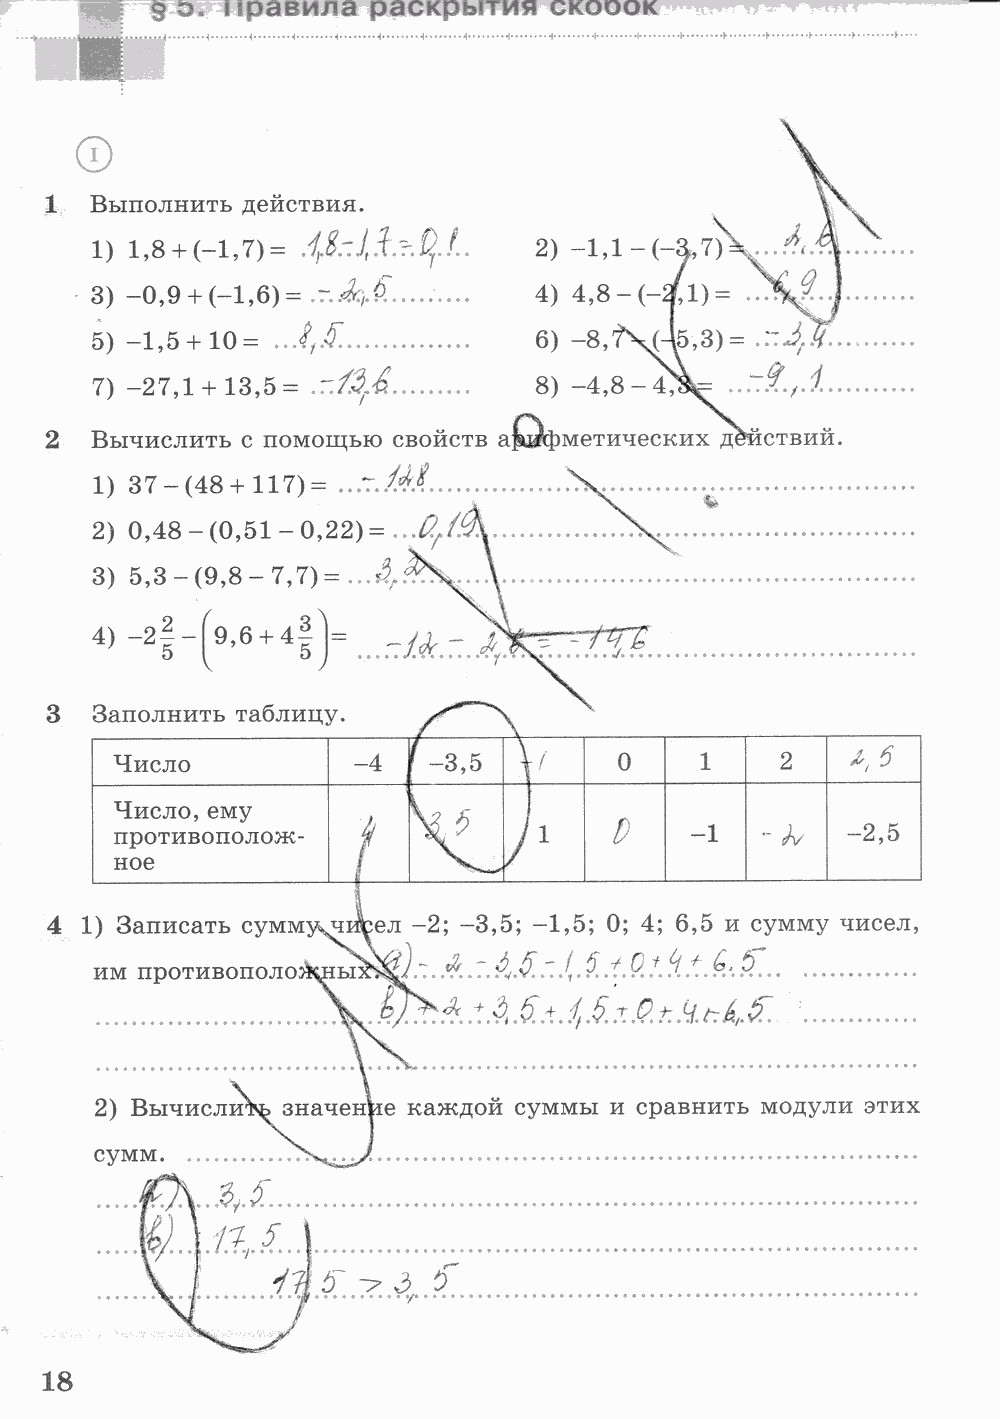 § 5. Правила раскрытия скобок
I
1 Выполнить действия.
1) 1,8 + (−1,7) = 1,8−1,7=0,1
2) −1,1 − (−3,7) = 2,6
3) −0,9 + (−1,6) = −2,5
4) 4,8 − (−2,1) = 6,9
5) −1,5 + 10 = 8,5
6) −8,7 − (−5,3) = −3,4
7) −27,1 + 13,5 = −13,6
8) −4,8 − 4,3 = −9,1
2 Вычислить с помощью свойств арифметических действий.
1) 37 − (48 + 117) = −128
2) 0,48 − (0,51 − 0,22) = 0,19
3) 5,3 − (9,8 − 7,7) = 3,2
4) −2 2/5 − (9,6 + 4 3/5) = −12 − 2,6 = −14,6
3 Заполнить таблицу.
Число −4 −3,5 −1 0 1 2 2,5
Число, ему
противополож- 4 3,5 1 0 −1 −2 −2,5
ное
4 1) Записать сумму чисел −2; −3,5; −1,5; 0; 4; 6,5 и сумму чисел,
им противоположных. а) −2−3,5−1,5+0+4+6.5
в) +2+3,5+1,5+0+4+6,5
2) Вычислить значение каждой суммы и сравнить модули этих
сумм.
а) 3,5
в) 17,5
17,5 > 3,5
18